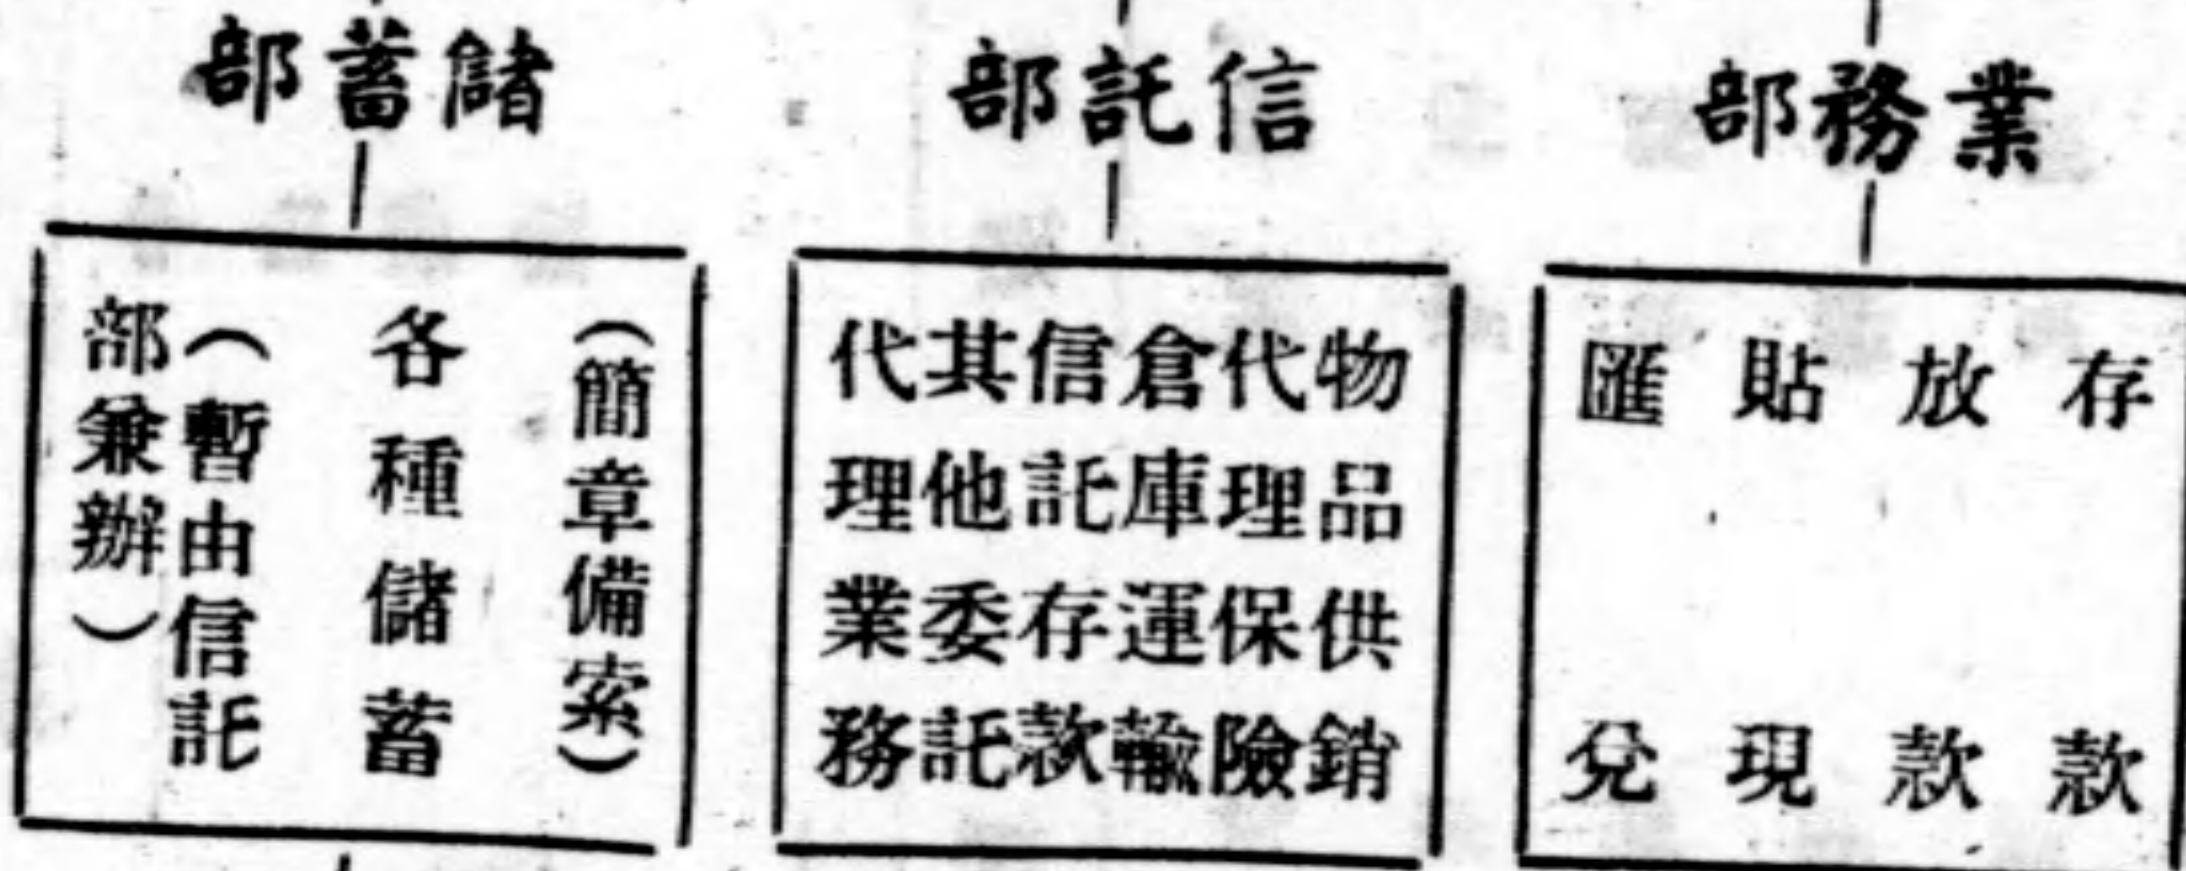 業務部
存款
放款
貼現
匯兌
信託部
物品供銷
代理保險
倉庫運輸
信託存款
其他委託
代理業務
儲蓄部
(簡章備索)
各種儲蓄
(暫由信託
部兼辦)